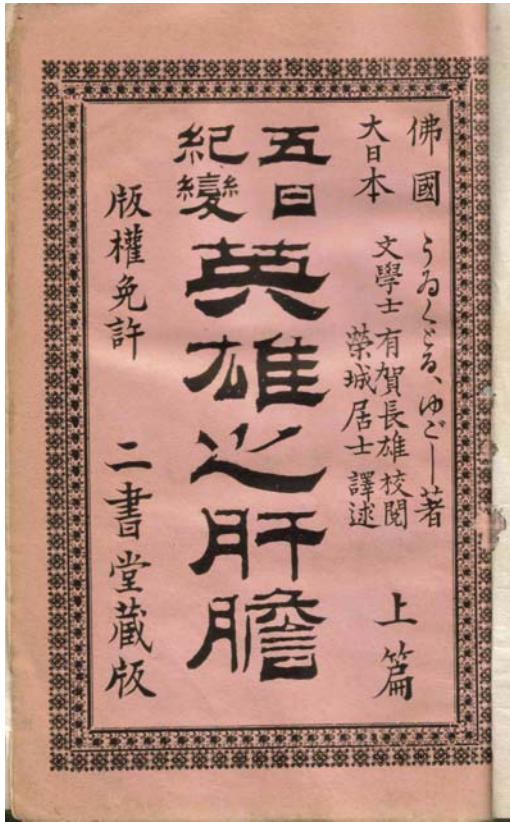 佛國 うゐくどる、ゆごー著
大日本 文學士 有賀長雄 校閱
榮城居士 譯述
上篇
五日
紀變
英雄之肝膽
版權免許 二書堂藏版